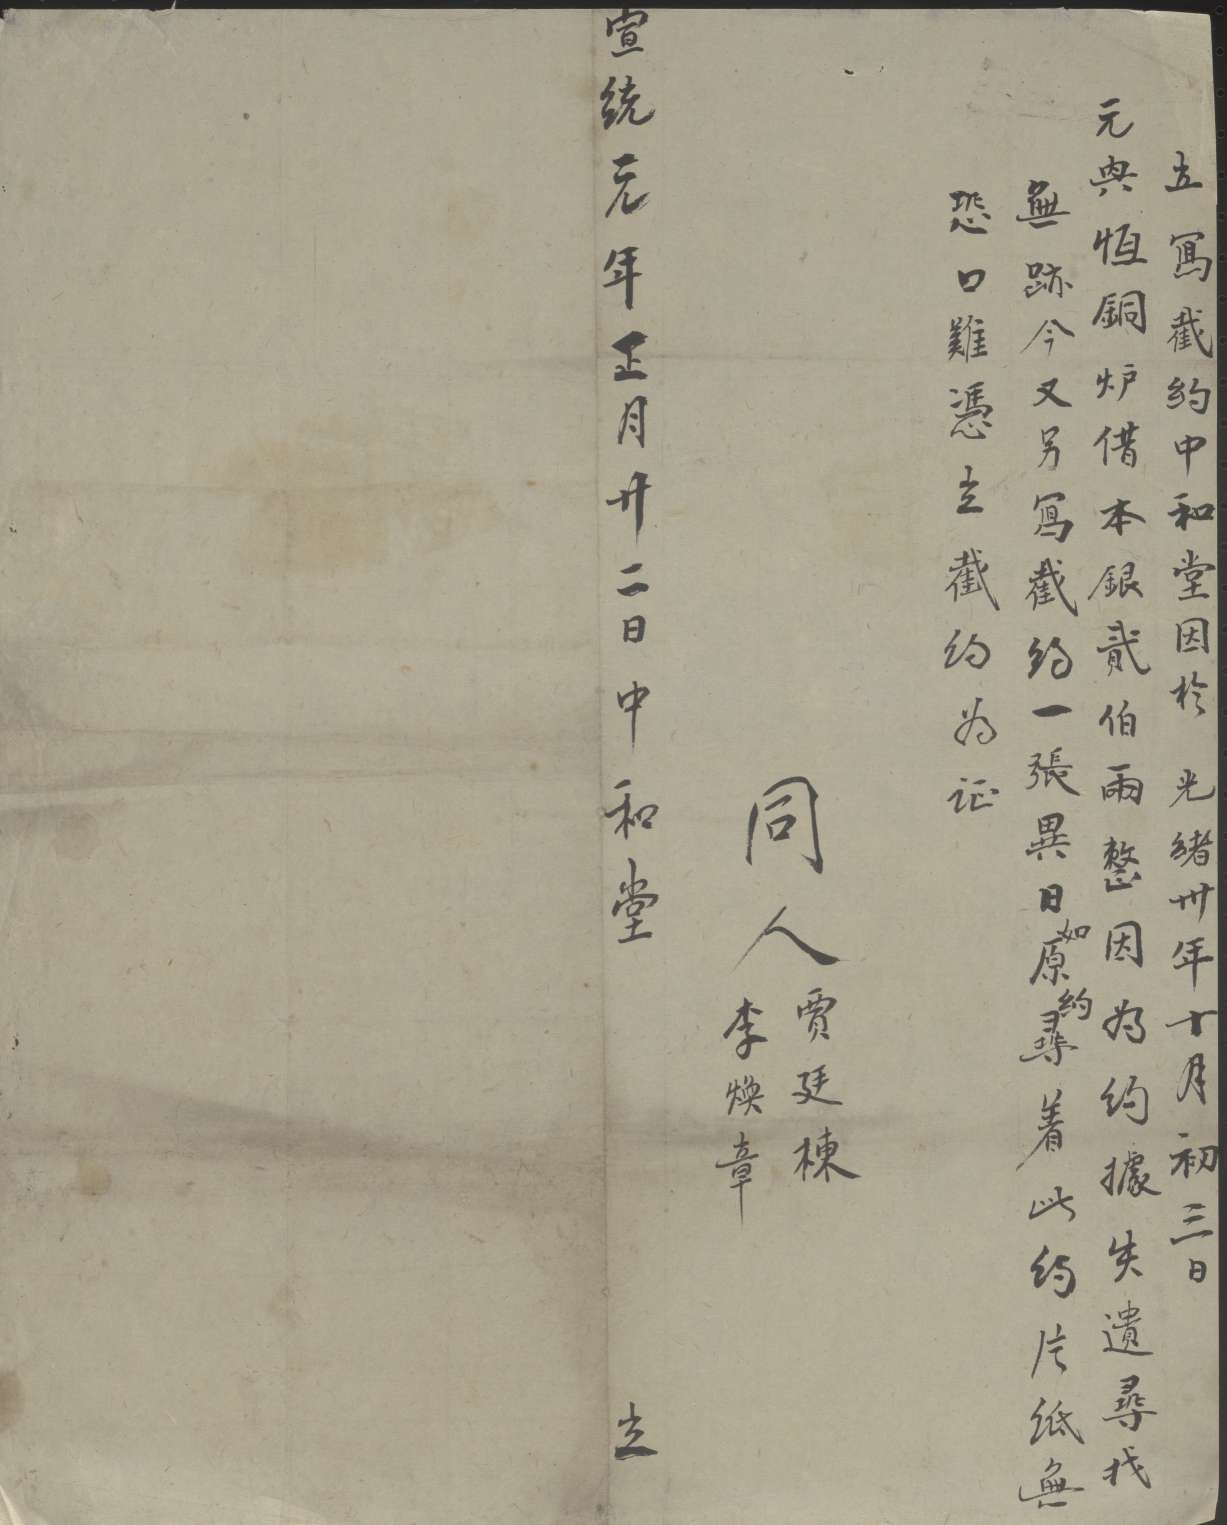 立寫截約中和堂因於 光緒卅年十月初三日
元興恒銅炉借本銀貳伯兩整因為約據失遺尋找
無跡今又另寫截約一張異日如原約尋着此約片紙無
恐口難憑立截約為证
同人賈廷棟
李煥章
宣統元年正月廿二日中和堂 立